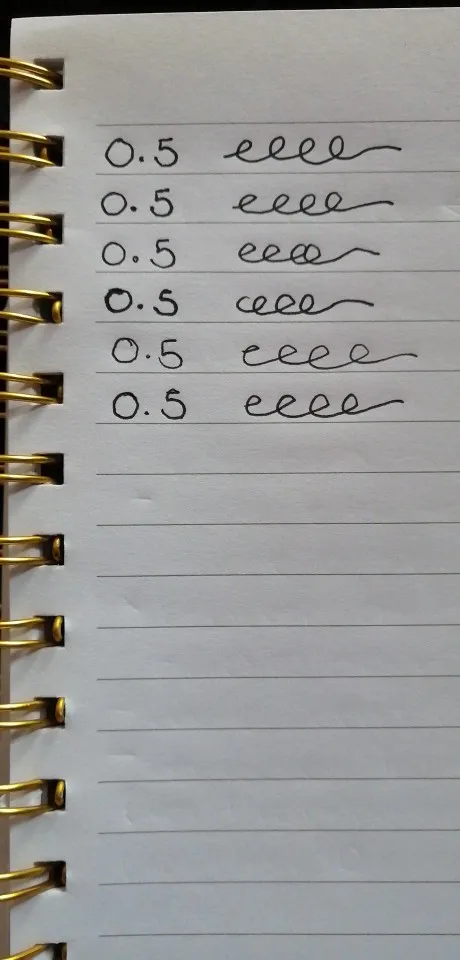 0.5 eeee
0.5 eeee
0.5 eeee
0.5 ceee
0.5 eeee
0.5 eeee